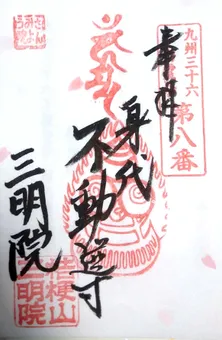 奉拝
九州三十六
第八番
身代
不動尊
三明院
桔梗山
三明院